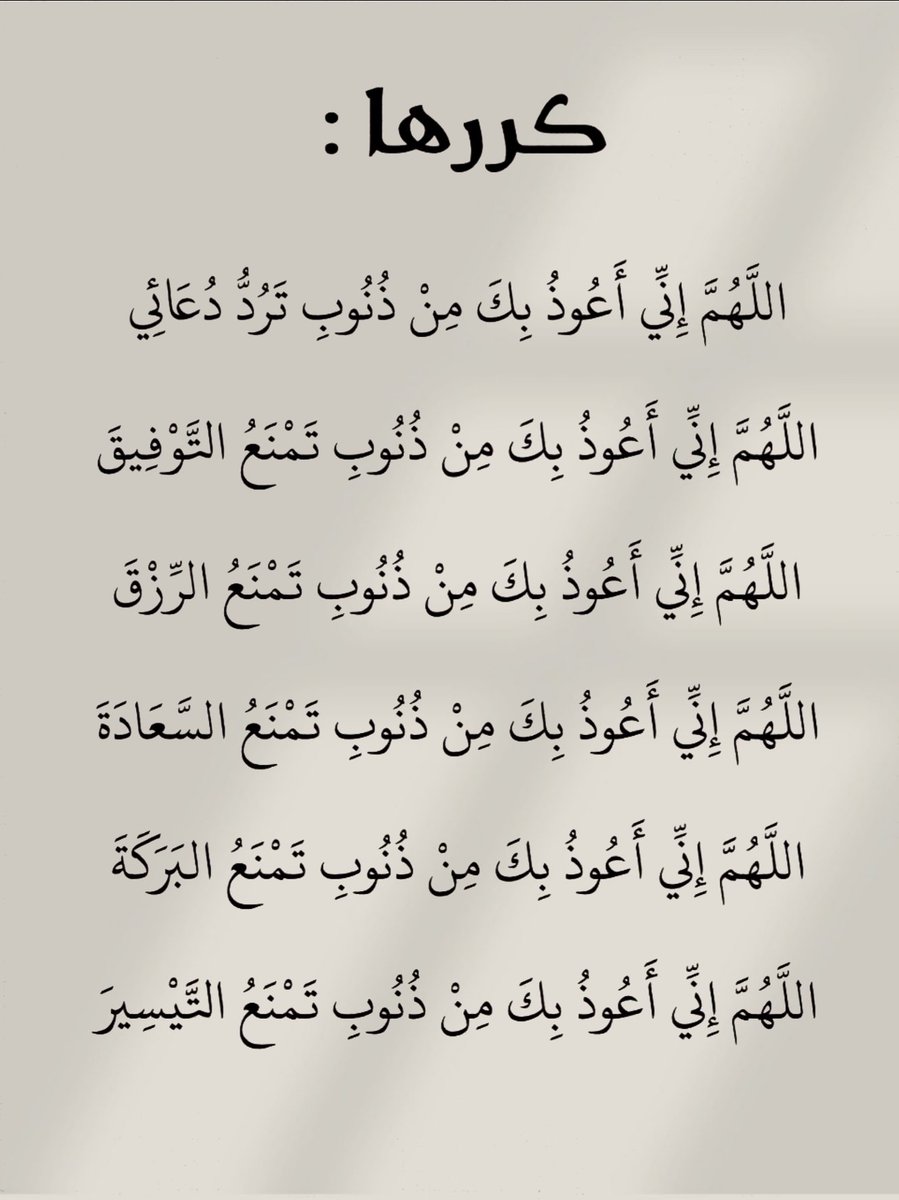 كررها :
اللَّهُمَّ إِنِّي أَعُوذُ بِكَ مِنْ ذُنُوبٍ تَرُدُّ دُعَائِي
اللَّهُمَّ إِنِّي أَعُوذُ بِكَ مِنْ ذُنُوبِ تَمْنَعُ التَّوْفِيقَ
اللَّهُمَّ إِنِّي أَعُوذُ بِكَ مِنْ ذُنُوبِ تَمْنَعُ الرِّزْقَ
اللَّهُمَّ إِنِّي أَعُوذُ بِكَ مِنْ ذُنُوبِ تَمْنَعُ السَّعَادَةَ
اللَّهُمَّ إِنِّي أَعُوذُ بِكَ مِنْ ذُنُوبِ تَمْنَعُ البَرَكَةَ
اللَّهُمَّ إِنِّي أَعُوذُ بِكَ مِنْ ذُنُوبِ تَمْنَعُ التَّيْسِيرَ